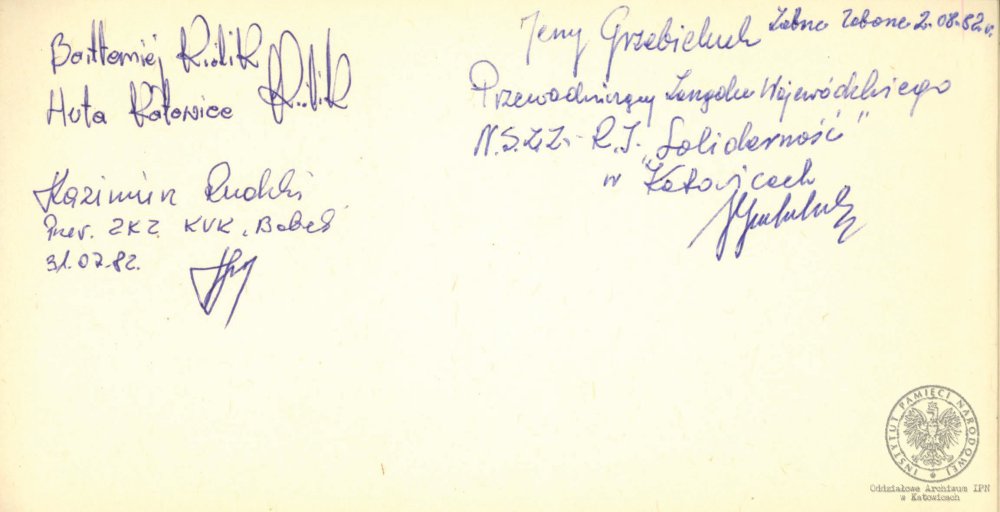 Bartłomiej Królik
Huta Katowice
Kazimierz Rudzki
Przew. ZKZ KWK "Bobrek"
31.07.82.
Jerzy Grzebieluch
Zabrze Zaborze 2.08.82 r.
Przewodniczący Zarządu Wojewódzkiego
N.S.Z.Z. R.I. "Solidarność"
w Katowicach
INSTYTUT PAMIĘCI NARODOWEJ
Oddziałowe Archiwum IPN
w Katowicach